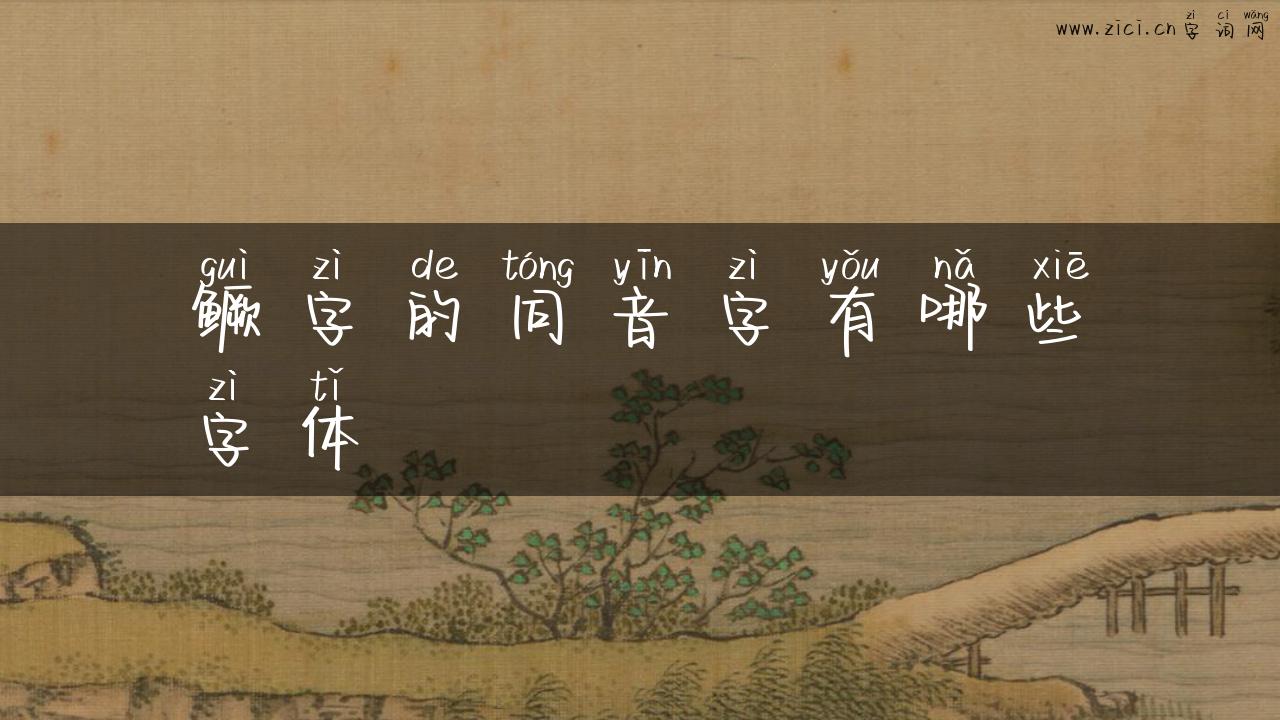 zì cí wǎng
www.zici.cn 字 词 网
guì zì de tóng yīn zì yǒu nǎ xiē
鳜 字 的 同 音 字 有 哪 些
zì tǐ
字 体